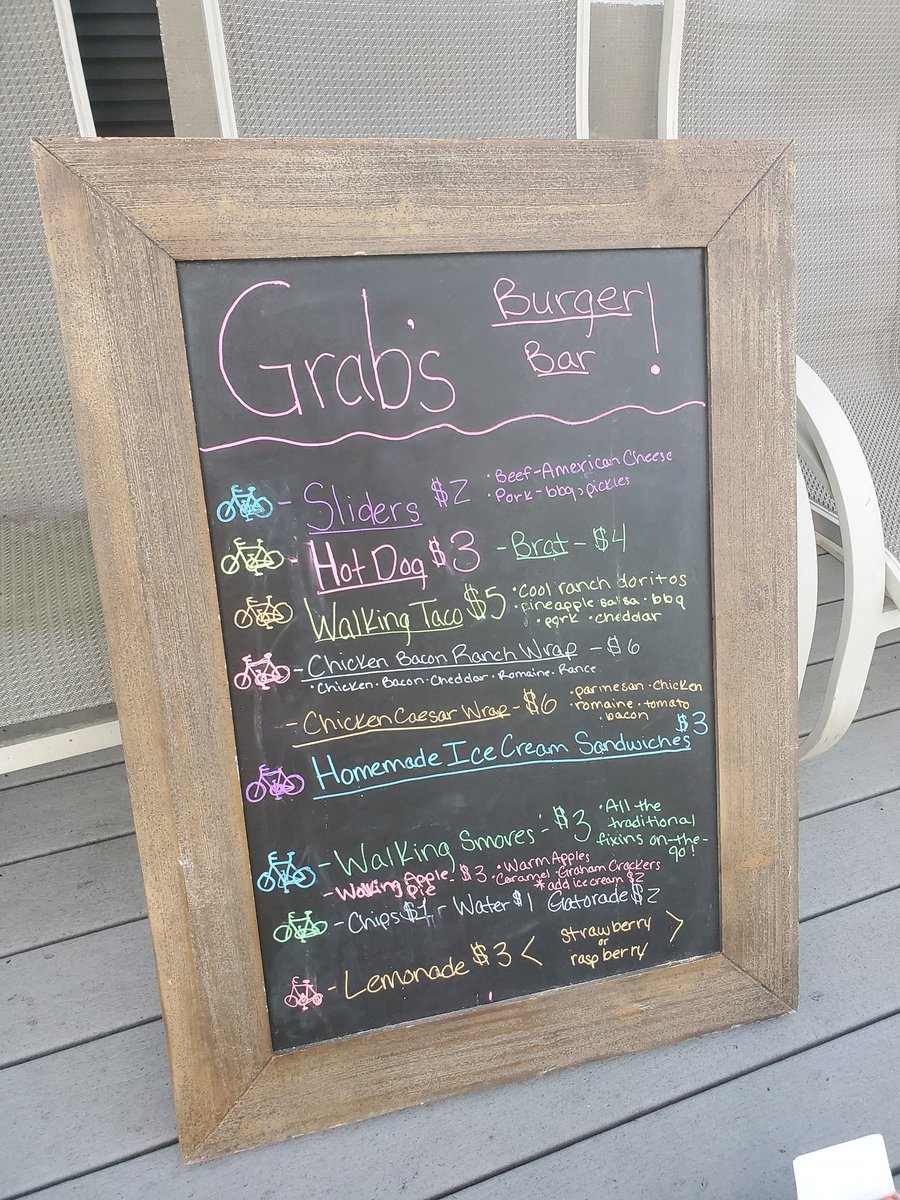 Grab's Burger Bar!
- Sliders $2 · Beef - American Cheese
· Pork - bbq, pickles
- Hot Dog $3 - Brat - $4
Walking Taco $5 · Cool ranch doritos
· pineapple salsa · bbq
pork · cheddar
- Chicken Bacon Ranch Wrap - $6
· Chicken · Bacon · Cheddar · Romaine · Rance
- Chicken Caesar Wrap - $6 · parmesan · chicken
· romaine · tomato
· bacon
Homemade Ice Cream Sandwiches $3
- Walking Smores - $3 · All the
traditional
fixins on-the-
go!
- Walking Apple Pie - $3 · Warm Apples
· Caramel · Graham Crackers
* add ice cream $2
- Chips $1 - Water $1 Gatorade $2
- Lemonade $3 < strawberry
or
raspberry >